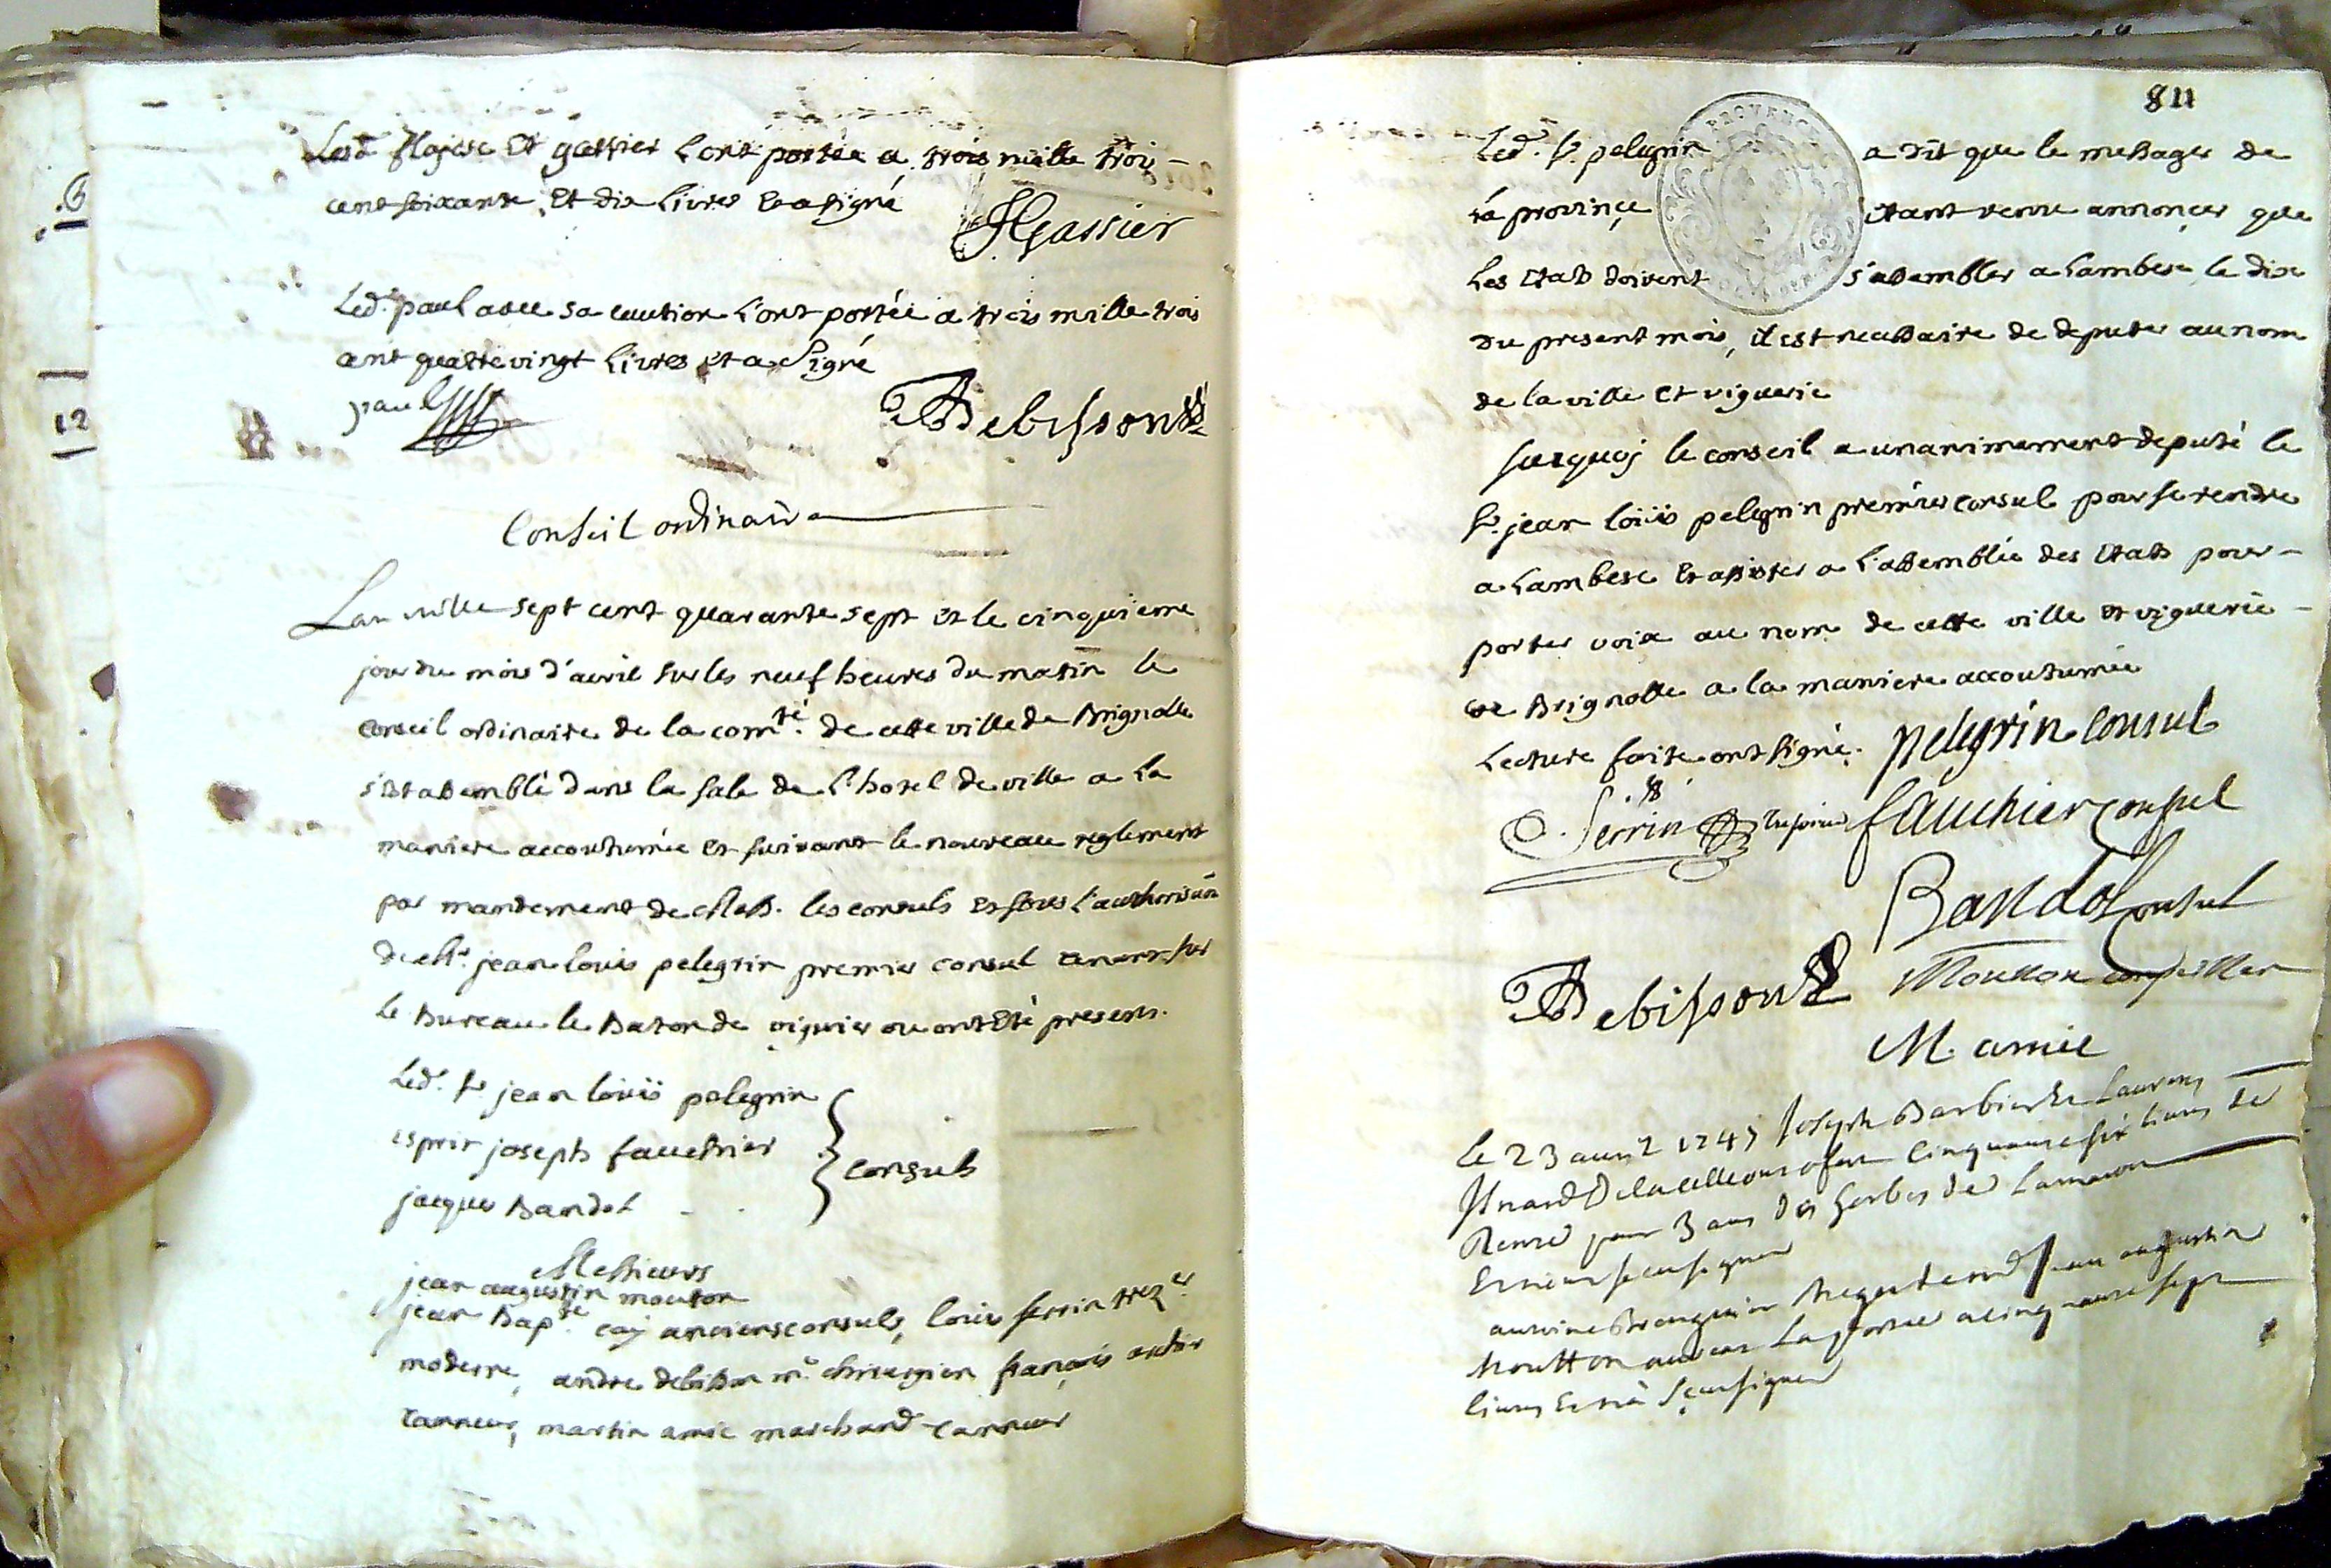 Lesd. flajese Et gassier l'ont portée a trois mille trois
cent soixante Et dix livres Et a signé
JGassier
Led. paul avec sa caution l'ont portée a trois mille trois
cent quattevingt livres Et a signé
paul
Debisson
Conseil ordinaire
L'an mille sept cent quarante sept et le cinquieme
jour du mois d'avril sur les neuf heures du matin le
conseil ordinaire de la com.té de cette ville de Brignolle
s'est assemblé dans la sale de l'hotel de ville a la
maniere accoutumée et suivant le nouveau reglement
par mandement de Mess. les consuls et sous l'authorisaōn
de Mr. jean louis pelegrin premier consul tenant sur
le Bureau le Baton de viguier ou ont Eté presens.
Led. Sr. jean loüis pelegrin
esprit joseph fauchier
consuls
jacques Bandol
Messieurs
jean augustin mouton
jean Bap.te caÿ anciens consuls, louis serrin trez.er
moderne, andre debisson me. chirurgien françois
tanneur, martin amic marchand tanneur
811
PROVENCE
Led. Sr. pelegrin a dit que le messager de
la province étant venu annonçer que
les Etats doivent s'assembler a Lambesc le dix
du present mois, il est necessaire de deputer au nom
de la ville et viguerie
surquoj le conseil a unanimement deputé le
Sr. jean loüis pelegrin premier consul pour se rendre
a Lambesc Et assister a l'assemblée des Etats pour
porter voix au nom de cette ville et viguerie
de Brignolle a la maniere accoutumée
Lecture faite ont signé. pelegrin Consul
Serrin tresorier fauchier Consul
Bandol Consul
Debisson Moutton conseiller
M. amic
Le 23 avril 1747 Joseph Barbier de Laurens
Isnard de la celle ont ofert Cinquante six livres de
Rente pour 3 ans des herbes de
Et n'ont sceu signer
antoine Braquier Jean augustin
Moutton a cinquante sept
livres Et n'a sceu signer